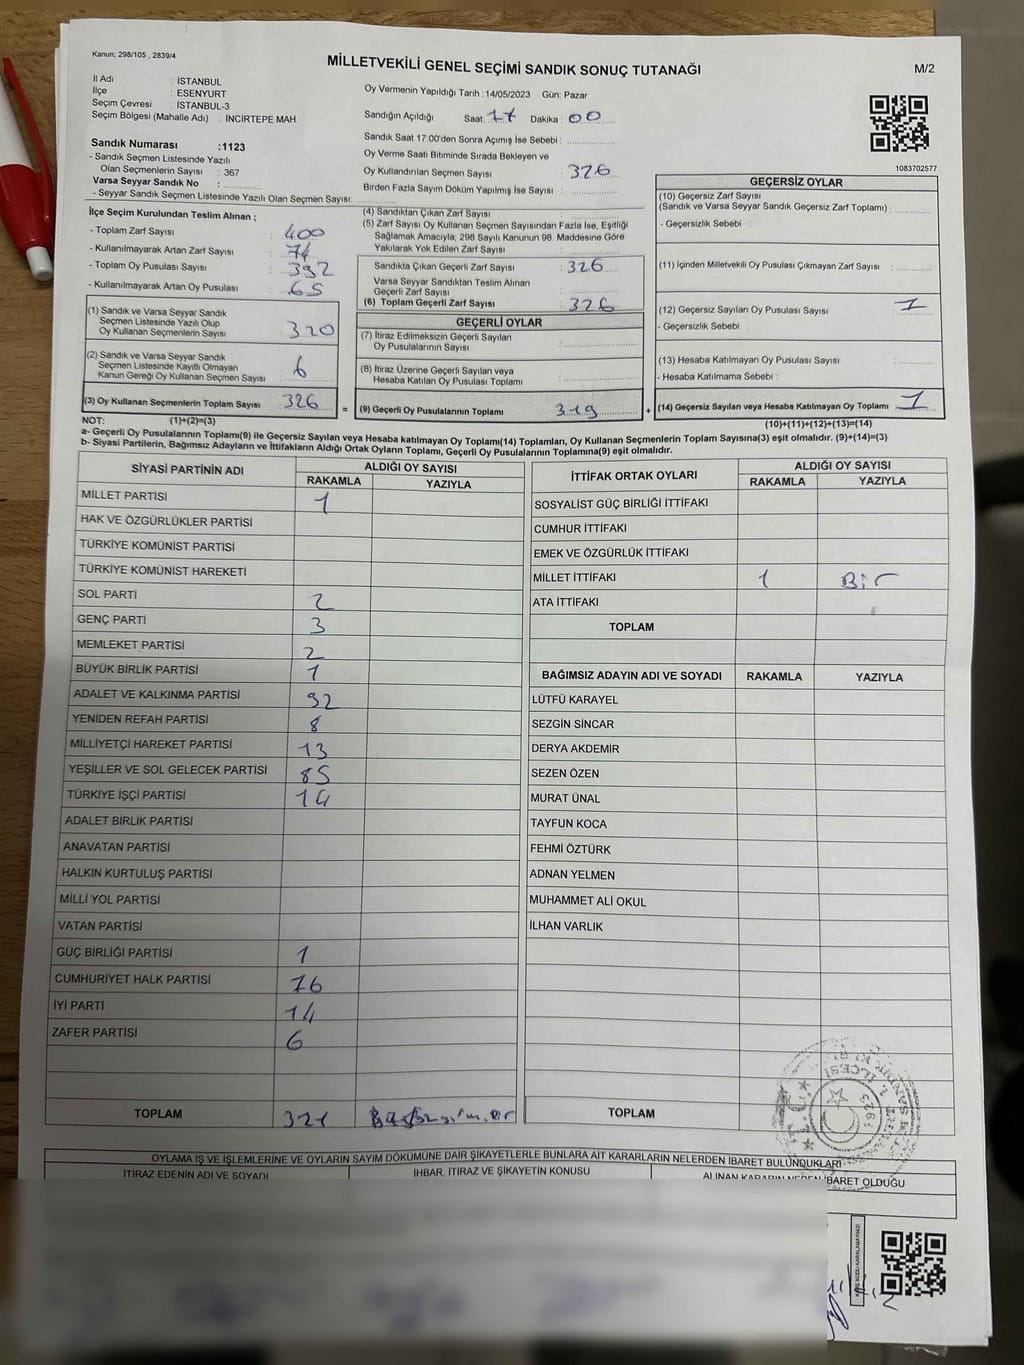 Kanun; 298/105 , 2839/4
MİLLETVEKİLİ GENEL SEÇİMİ SANDIK SONUÇ TUTANAĞI
M/2
İl Adı : İSTANBUL
İlçe : ESENYURT
Seçim Çevresi : İSTANBUL-3
Seçim Bölgesi (Mahalle Adı) : İNCİRTEPE MAH
Sandık Numarası :1123
- Sandık Seçmen Listesinde Yazılı
Olan Seçmenlerin Sayısı : 367
Varsa Seyyar Sandık No :
- Seyyar Sandık Seçmen Listesinde Yazılı Olan Seçmen Sayısı:
Oy Vermenin Yapıldığı Tarih :14/05/2023 Gün: Pazar
Sandığın Açıldığı Saat: 17 Dakika : 00
Sandık Saat 17:00'den Sonra Açımış İse Sebebi :
Oy Verme Saati Bitiminde Sırada Bekleyen ve
Oy Kullandırılan Seçmen Sayısı : 326
Birden Fazla Sayım Döküm Yapılmış İse Sayısı :
1083702577
İlçe Seçim Kurulundan Teslim Alınan ;
- Toplam Zarf Sayısı : 400
- Kullanılmayarak Artan Zarf Sayısı : 74
- Toplam Oy Pusulası Sayısı : 392
- Kullanılmayarak Artan Oy Pusulası : 65
(1) Sandık ve Varsa Seyyar Sandık
Seçmen Listesinde Yazılı Olup
Oy Kullanan Seçmenlerin Sayısı : 320
(2) Sandık ve Varsa Seyyar Sandık
Seçmen Listesinde Kayıtlı Olmayan
Kanun Gereği Oy Kullanan Seçmen Sayısı : 6
(3) Oy Kullanan Seçmenlerin Toplam Sayısı : 326
(4) Sandıktan Çıkan Zarf Sayısı :
(5) Zarf Sayısı Oy Kullanan Seçmen Sayısından Fazla İse, Eşitliği
Sağlamak Amacıyla; 298 Sayılı Kanunun 98. Maddesine Göre
Yakılarak Yok Edilen Zarf Sayısı :
Sandıkta Çıkan Geçerli Zarf Sayısı : 326
Varsa Seyyar Sandıktan Teslim Alınan
Geçerli Zarf Sayısı :
(6) Toplam Geçerli Zarf Sayısı : 326
GEÇERLİ OYLAR
(7) İtiraz Edilmeksizin Geçerli Sayılan
Oy Pusulalarının Sayısı :
(8) İtiraz Üzerine Geçerli Sayılan veya
Hesaba Katılan Oy Pusulası Toplamı :
= (9) Geçerli Oy Pusulalarının Toplamı : 319
GEÇERSİZ OYLAR
(10) Geçersiz Zarf Sayısı
(Sandık ve Varsa Seyyar Sandık Geçersiz Zarf Toplamı) :
- Geçersizlik Sebebi :
(11) İçinden Milletvekili Oy Pusulası Çıkmayan Zarf Sayısı :
(12) Geçersiz Sayılan Oy Pusulası Sayısı : 1
- Geçersizlik Sebebi :
(13) Hesaba Katılmayan Oy Pusulası Sayısı :
- Hesaba Katılmama Sebebi :
+ (14) Geçersiz Sayılan veya Hesaba Katılmayan Oy Toplamı : 1
NOT: (1)+(2)=(3)
(10)+(11)+(12)+(13)=(14)
a- Geçerli Oy Pusulalarının Toplamı(9) ile Geçersiz Sayılan veya Hesaba katılmayan Oy Toplamı(14) Toplamları, Oy Kullanan Seçmenlerin Toplam Sayısına(3) eşit olmalıdır. (9)+(14)=(3)
b- Siyasi Partilerin, Bağımsız Adayların ve İttifakların Aldığı Ortak Oyların Toplamı, Geçerli Oy Pusulalarının Toplamına(9) eşit olmalıdır.
SİYASİ PARTİNİN ADI ALDIĞI OY SAYISI
RAKAMLA YAZIYLA
MİLLET PARTİSİ 1
HAK VE ÖZGÜRLÜKLER PARTİSİ
TÜRKİYE KOMÜNİST PARTİSİ
TÜRKİYE KOMÜNİST HAREKETİ
SOL PARTİ 2
GENÇ PARTİ 3
MEMLEKET PARTİSİ 2
BÜYÜK BİRLİK PARTİSİ 1
ADALET VE KALKINMA PARTİSİ 92
YENİDEN REFAH PARTİSİ 8
MİLLİYETÇİ HAREKET PARTİSİ 13
YEŞİLLER VE SOL GELECEK PARTİSİ 85
TÜRKİYE İŞÇİ PARTİSİ 14
ADALET BİRLİK PARTİSİ
ANAVATAN PARTİSİ
HALKIN KURTULUŞ PARTİSİ
MİLLİ YOL PARTİSİ
VATAN PARTİSİ
GÜÇ BİRLİĞİ PARTİSİ 1
CUMHURİYET HALK PARTİSİ 76
İYİ PARTİ 14
ZAFER PARTİSİ 6
TOPLAM 321
İTTİFAK ORTAK OYLARI ALDIĞI OY SAYISI
RAKAMLA YAZIYLA
SOSYALİST GÜÇ BİRLİĞİ İTTİFAKI
CUMHUR İTTİFAKI
EMEK VE ÖZGÜRLÜK İTTİFAKI
MİLLET İTTİFAKI 1 Bir
ATA İTTİFAKI
TOPLAM
BAĞIMSIZ ADAYIN ADI VE SOYADI RAKAMLA YAZIYLA
LÜTFÜ KARAYEL
SEZGİN SİNCAR
DERYA AKDEMİR
SEZEN ÖZEN
MURAT ÜNAL
TAYFUN KOCA
FEHMİ ÖZTÜRK
ADNAN YELMEN
MUHAMMET ALİ OKUL
İLHAN VARLIK
TOPLAM
OYLAMA İŞ VE İŞLEMLERİNE VE OYLARIN SAYIM DÖKÜMÜNE DAİR ŞİKAYETLERLE BUNLARA AİT KARARLARIN NELERDEN İBARET BULUNDUKLARI
İTİRAZ EDENİN ADI VE SOYADI İHBAR, İTİRAZ VE ŞİKAYETİN KONUSU ALINAN KARARIN NEDEN İBARET OLDUĞU